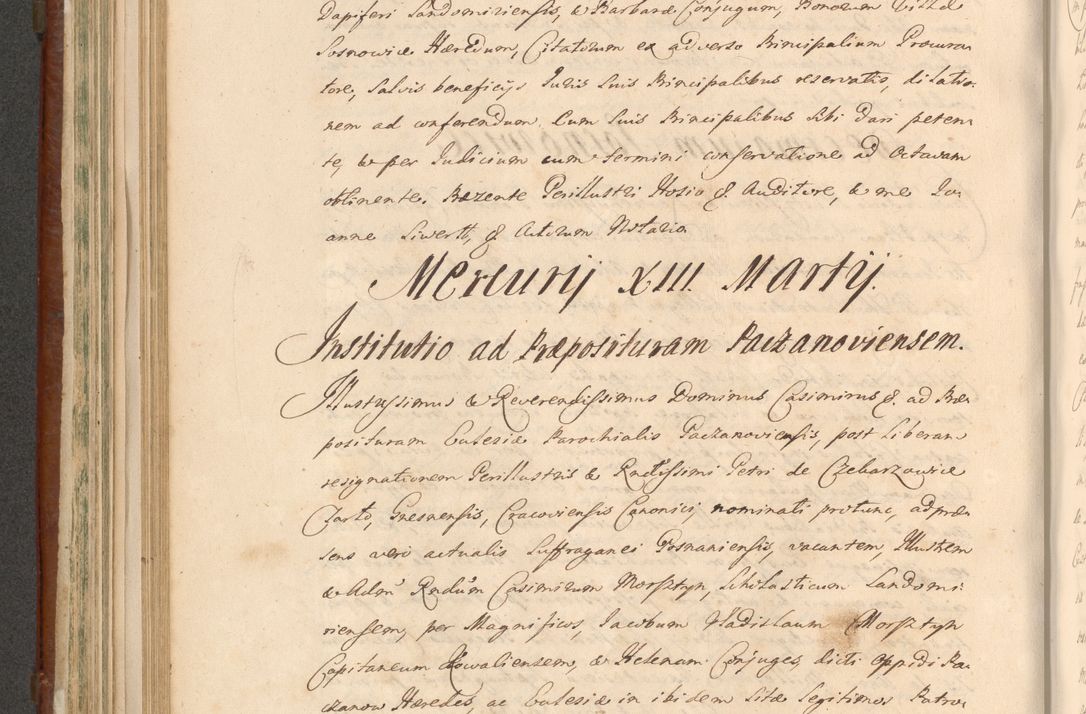 Dapiferi Sandomiriensis, & Barbaræ Conjugum, Bonorum Villæ
Sosnowice Hæredum, Citatorum ex adverso Principalium Procura-
tore, Salvis beneficijs Juris suis Principalibus reservatis, dilatio-
nem ad conferendum. Cum suis Principalibus sibi dari peten-
te, & per Judicium cum termini conservatione ad Octavam
obtinente. Præsente Perillustri Hosio &. Auditore, & me Jo-
anne Siwertt, &. Actorum Notario
Mercurij XIII. Martij.
Institutio ad Præposituram Paczanoviensem.
Illustrissimus & Reverendissimus Dominus Casimirus &. ad Præ-
posituram Ecclesiæ Parochialis Paczanoviensis, post liberam
resignationem Perillustris & Rndissimi Petri de Czekarzowice
Tarło, Gnesnensis, Cracoviensis Canonici, nominati protunc, ad præ-
sens veri actualis Suffraganei Posnaniensis, vacantem, Illustrem
& Adm Rndum Casimirum Morsztyn, Scholasticum Sandomi-
riensem, per Magnificos, Jacobum Vladislaum Morsztyn
Capitaneum Kowaliensem, & Helenam Conjuges, dicti Oppidi Pa-
czanow Hæredes, ac Ecclesiæ in ibidem sitæ Legitimos Patro-